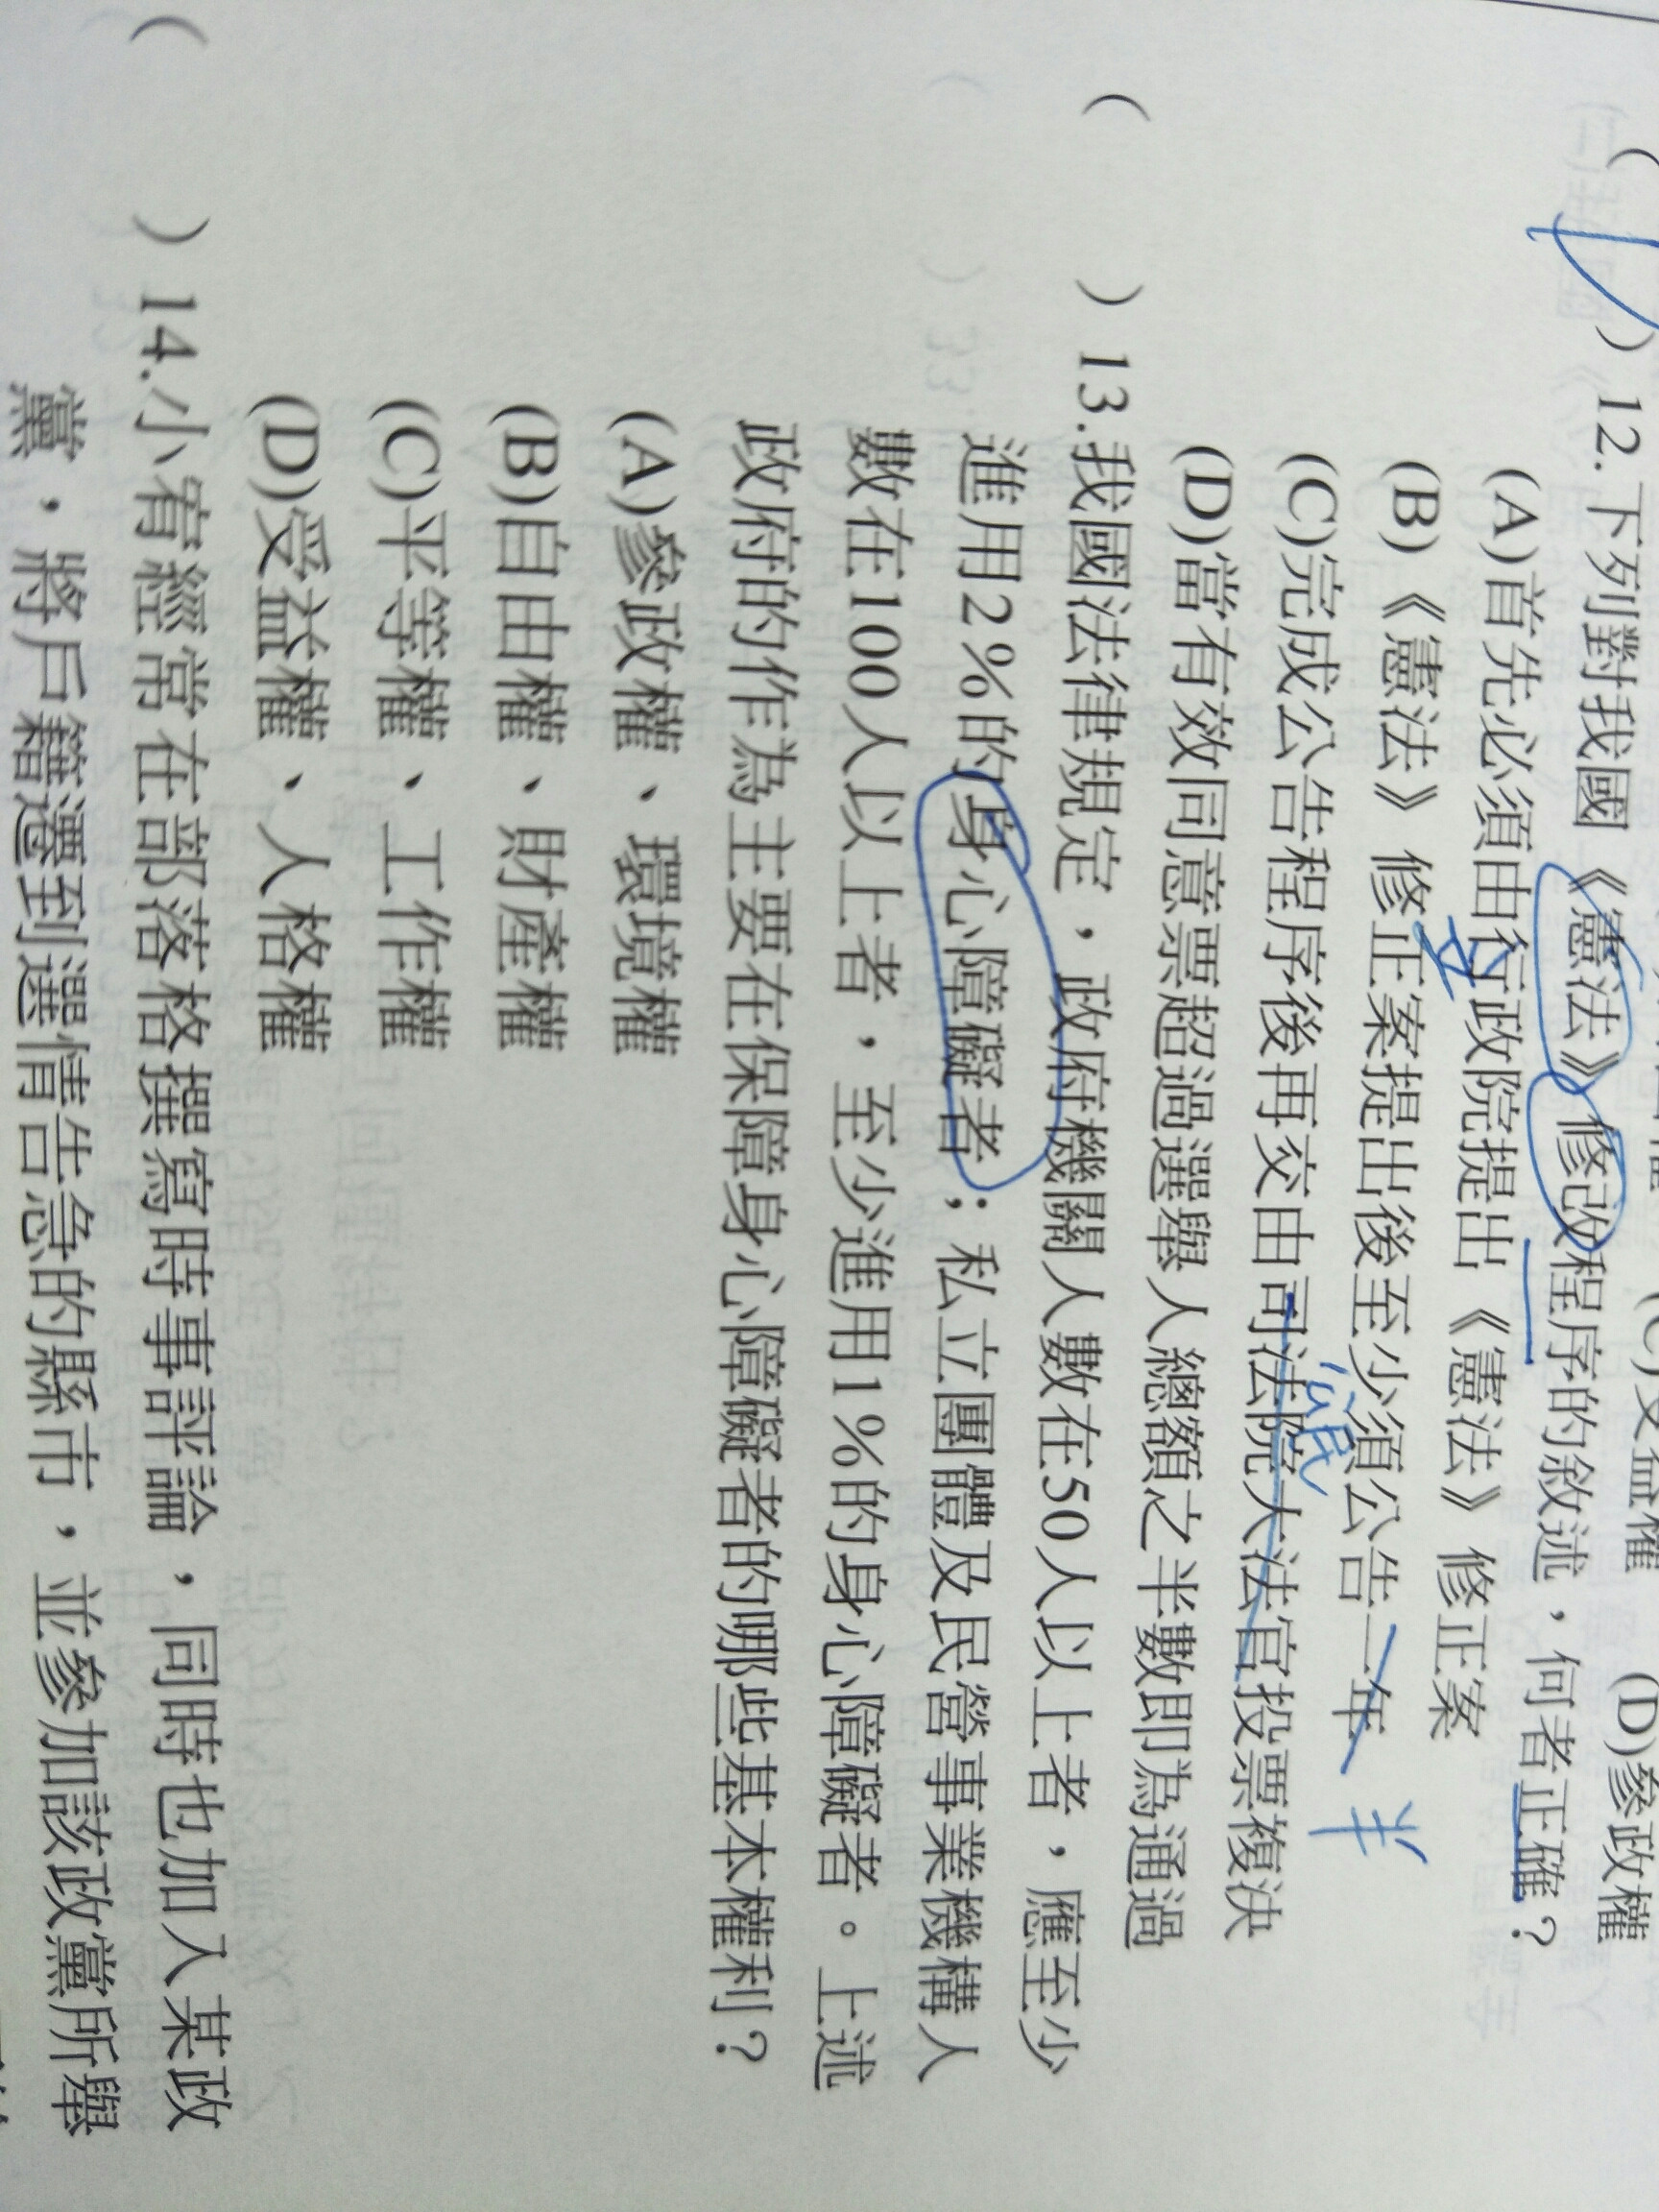 (D)參政權
( )12.下列對我國《憲法》修改程序的敘述，何者正確？
(A)首先必須由行政院提出《憲法》修正案
立
(B)《憲法》修正案提出後至少須公告一年
半
(C)完成公告程序後再交由司法院大法官投票複決
公民
(D)當有效同意票超過選舉人總額之半數即為通過
( )13.我國法律規定，政府機關人數在50人以上者，應至少
進用2%的身心障礙者；私立團體及民營事業機構人
數在100人以上者，至少進用1%的身心障礙者。上述
政府的作為主要在保障身心障礙者的哪些基本權利？
(A)參政權、環境權
(B)自由權、財產權
(C)平等權、工作權
(D)受益權、人格權
( )14.小宥經常在部落格撰寫時事評論，同時也加入某政
黨，將戶籍遷到選情告急的縣市，並參加該政黨所舉